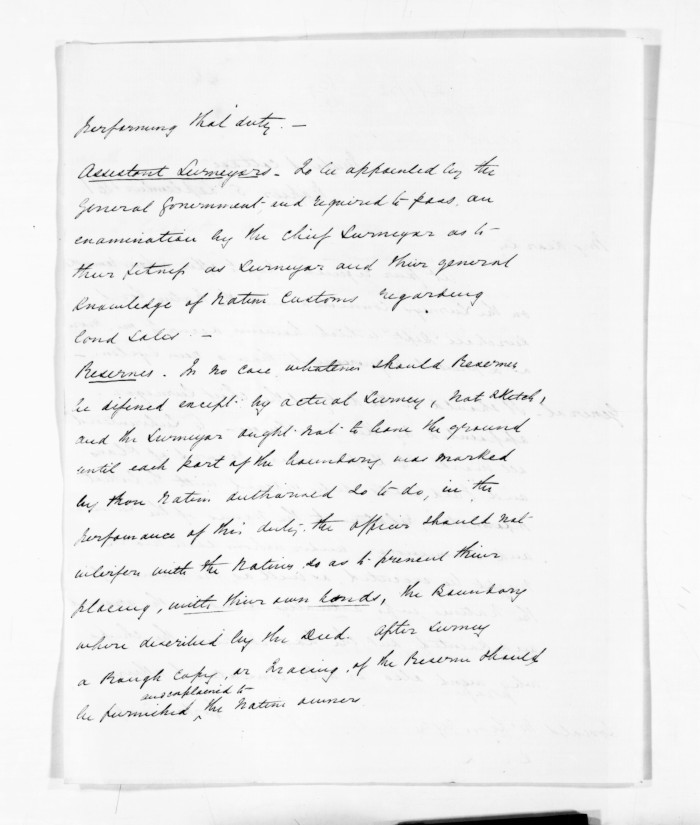 performing that duty. —
Assistant Surveyors - To be appointed by the
General Government and required to pass an
examination by the Chief Surveyor as to
their fitness as Surveyor and their general
knowledge of Native Customs regarding
land sales. —
Reserves. In no case whatever should Reserves
be defined except by actual Survey, not sketch,
and the Surveyor ought not to leave the ground
until each part of the boundary was marked
by those Natives authorised so to do, in the
performance of this duty the officer should not
interfere with the Natives so as to prevent their
placing, with their own hands, the Boundary
where described by the Deed. After Survey
a Rough Copy, or Tracing, of the Reserve should
and explained to
be furnished the Native owners